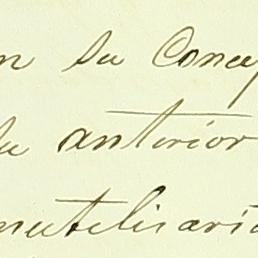 n su Concep
la anterior
inutilisaria